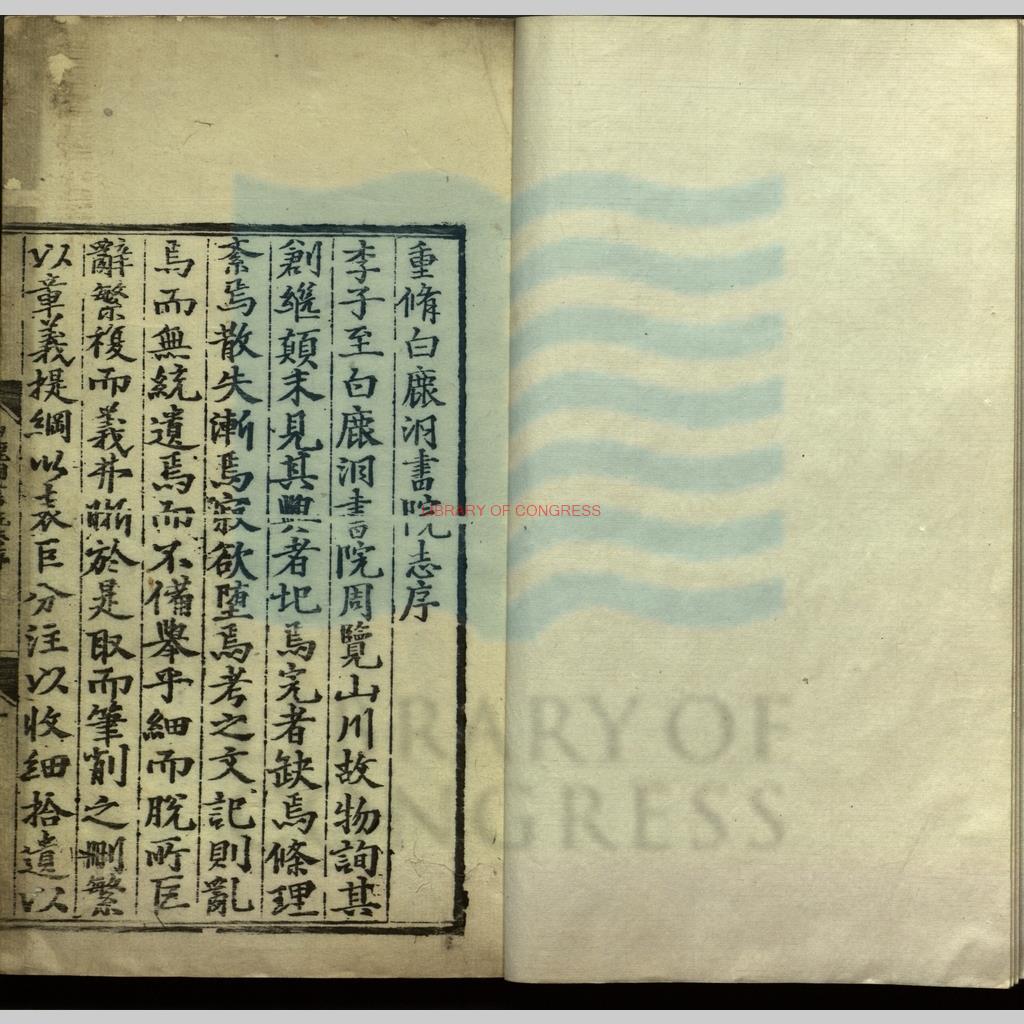 重脩白鹿洞書院志序
李子至白鹿洞書院周覽山川故物詢其
創繼顛末見其興者圮焉完者缺焉條理
紊焉散失漸焉寂欲墮焉考之文記則亂
焉而無統遺焉而不備舉乎細而脫所巨
辭繁複而義弗晣於是取而筆削之刪繁
以章義提綱以表巨分注以收細拾遺以
LIBRARY OF CONGRESS
LIBRARY OF
CONGRESS